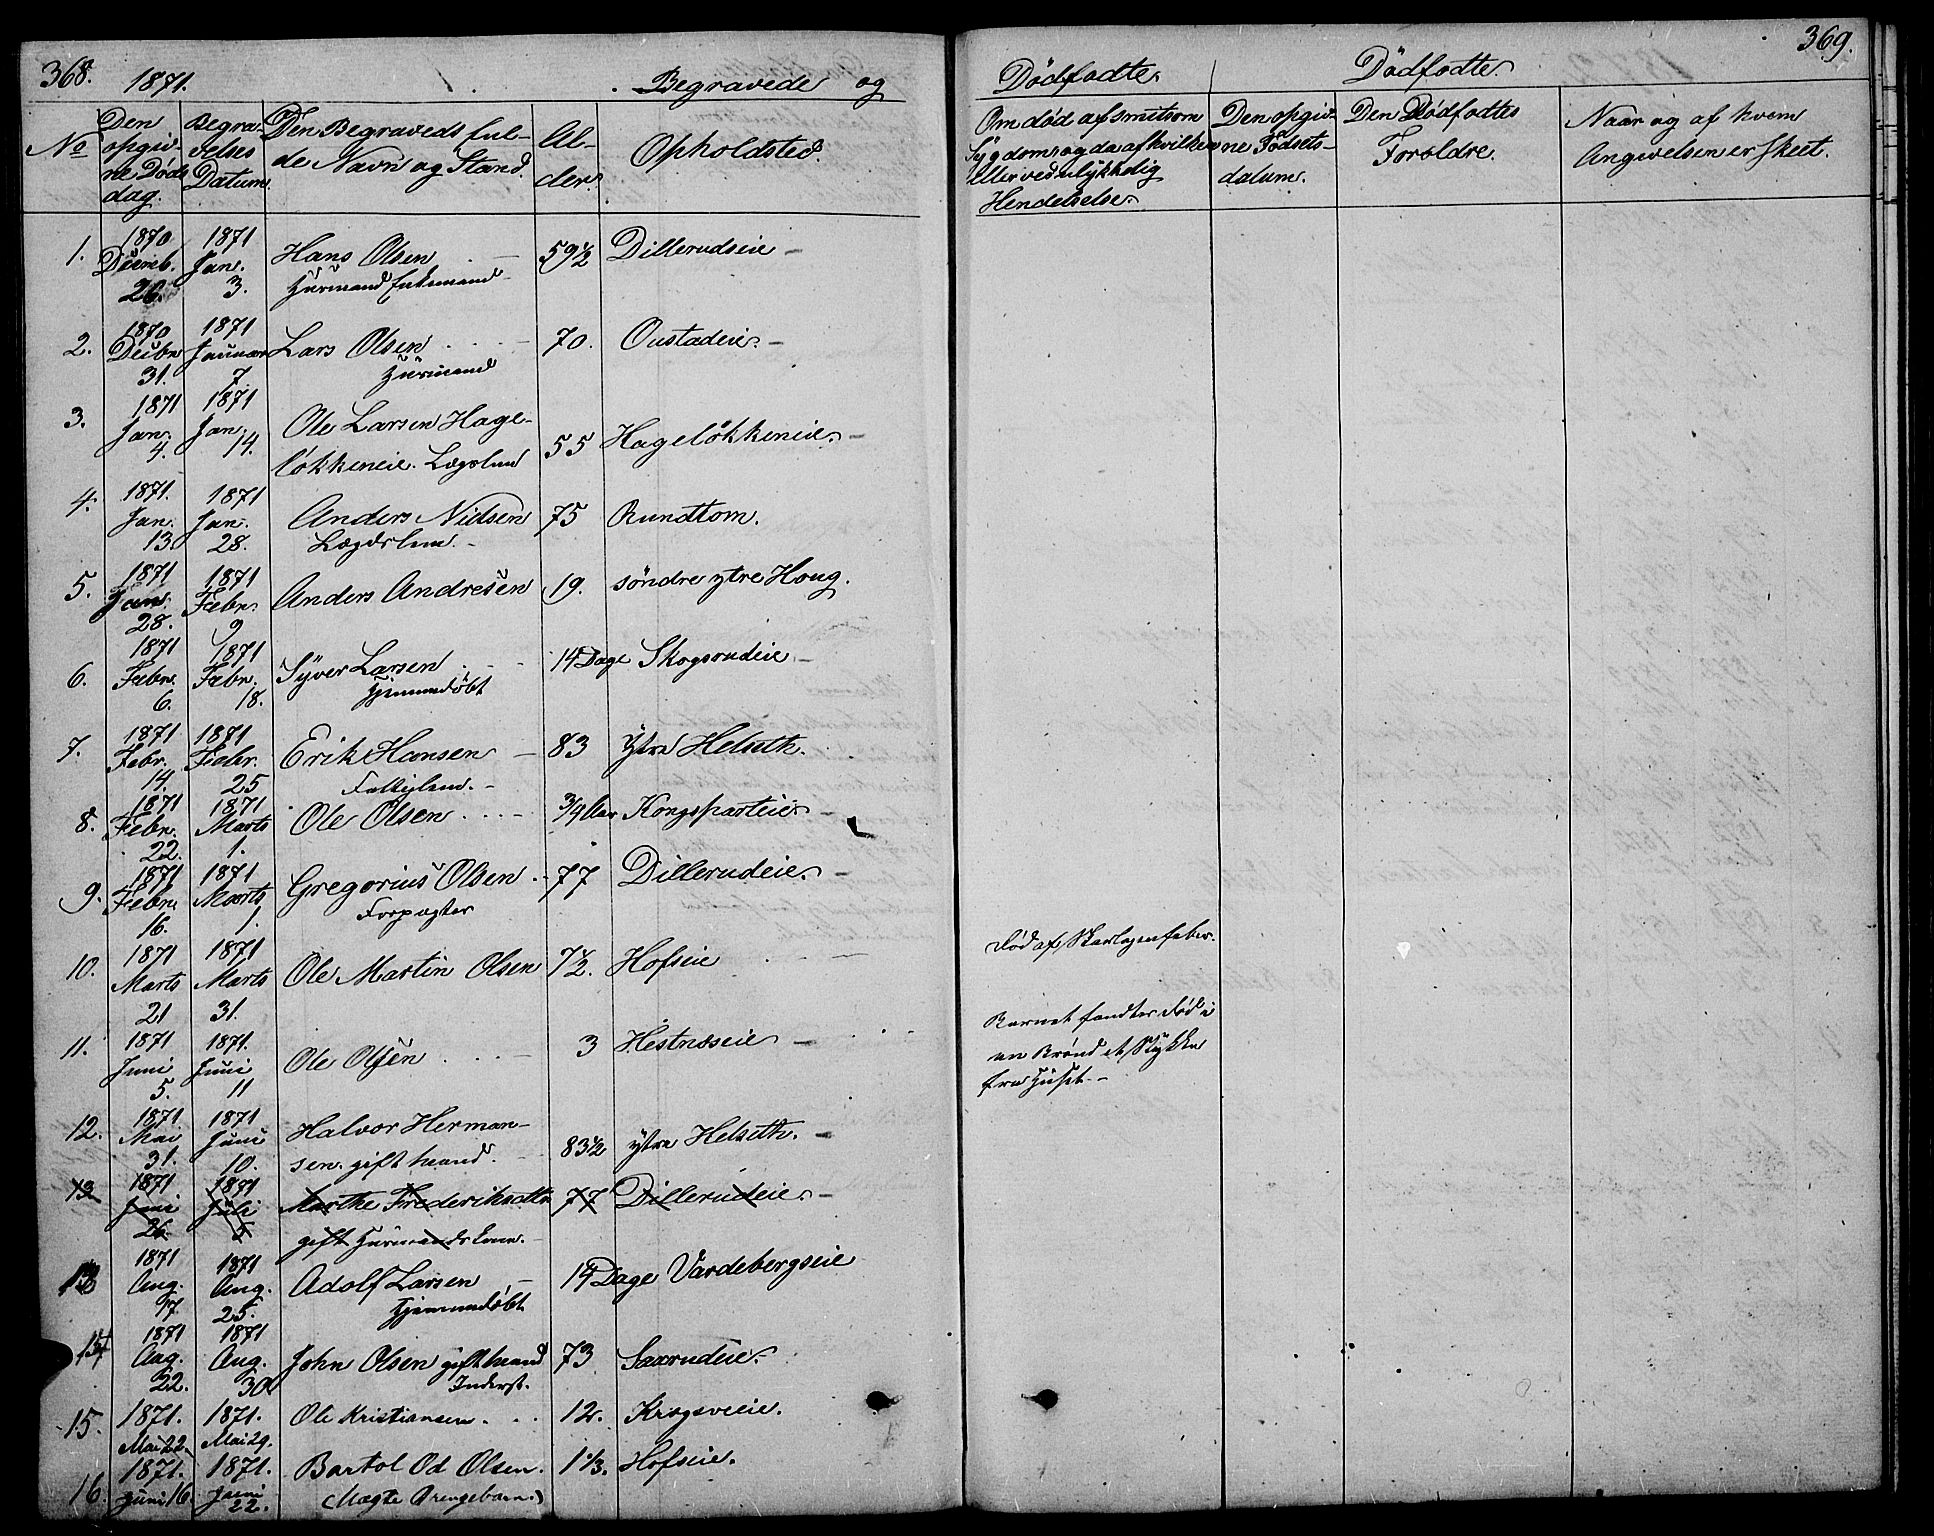 368. 1871. Begravede og
No
Den opgiv-
ne Døds
dag.
Begra-
velses
Datum
Den Begraveds ful-
de Navn og Stand.
Al-
der.
Opholdsted.
1. 1870 Decemb. 26. 1871 Jan. 3. Hans Olsen 59½ Dillerudseie
Huusmand Enkemand
2. 1870 Decbr 31. 1871 Januar 7. Lars Olsen 70. Oustadeie.
Huusmand
3. 1871 Jan. 4. 1871 Jan. 14. Ole Larsen Hage-
løkkeneie. Lægslem 55 Hageløkkeneie.
4. 1871. Jan. 13. 1871 Jan. 28. Anders Nielsen 75 Rundtom.
Lægdslem.
5. 1871 Jan. 28. 1871 Febr. 9 Anders Andresen 19. søndre ytre Houg.
6. 1871 Febr. 6. 1871 Febr. 18. Syver Larsen 14 Dage Skogsrudeie
Hjemmedøbt
7. 1871 Febr. 14. 1871 Febr. 25 Erik Hansen 83 ytre Helseth.
Fattiglem.
8. 1871 Febr. 22. 1871 Marts 1. Ole Olsen ¾ Aar Kongsparteie
9. 1871 Febr. 16. 1871 Marts 1. Gregorius Olsen 77 Dillerudeie.
Forpagter
10. 1871 Marts 21 1871 Marts 31. Ole Martin Olsen 7½. Hofseie
11. 1871 Juni 5. 1871. Juni 11 Ole Olsen 3 Hestnæseie
12. 1871. Mai 31. 1871 Juni 10. Halvor Herman-
sen. gift Mand. 83½ ytre Helseth.
13 1871 Juni 26. 1871 Juli 5 Marthe Frederiksdtr 77 Dillerudeie.
gift Huusmandskone.
13 1871 Aug. 17. 1871 Aug. 25. Adolf Larsen 14 Dage Vardebergseie
Hjemmedøbt
14 1871 Aug. 22. 1871 Aug. 30 John Olsen gift Mand 73 Saxrudeie.
Inderst.
15. 1871. Mai 22. 1871. Mai 29. Ole Kristiansen. 12. Krogsveeie.
16. 1871. Juni 16. 1871. Juni 22. Bartol Od Olsen. 1⅓. Hofseie.
(Uægte Drengebarn.)
Dødfødte. Dødfødte. 369.
Om død af smitsom
Sygdom og da af hvilken
eller ved ulykkelig
Hendelselse.
Den opgiv-
ne Fødsels-
datum.
Den Dødfødtes
Foreldre.
Naar og af hvem
Angivelsen er skeet.
Død af Skarlagensfeber.
Barnet fandtes død i
en Brønd et Stykke
fra Huset.